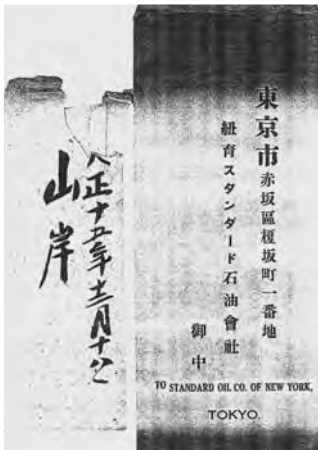 東京市赤坂區榎坂町一番地
紐育スタンダード石油會社
御中
TO STANDARD OIL CO. OF NEW YORK,
TOKYO.
大正十五年十二月十八日
山岸